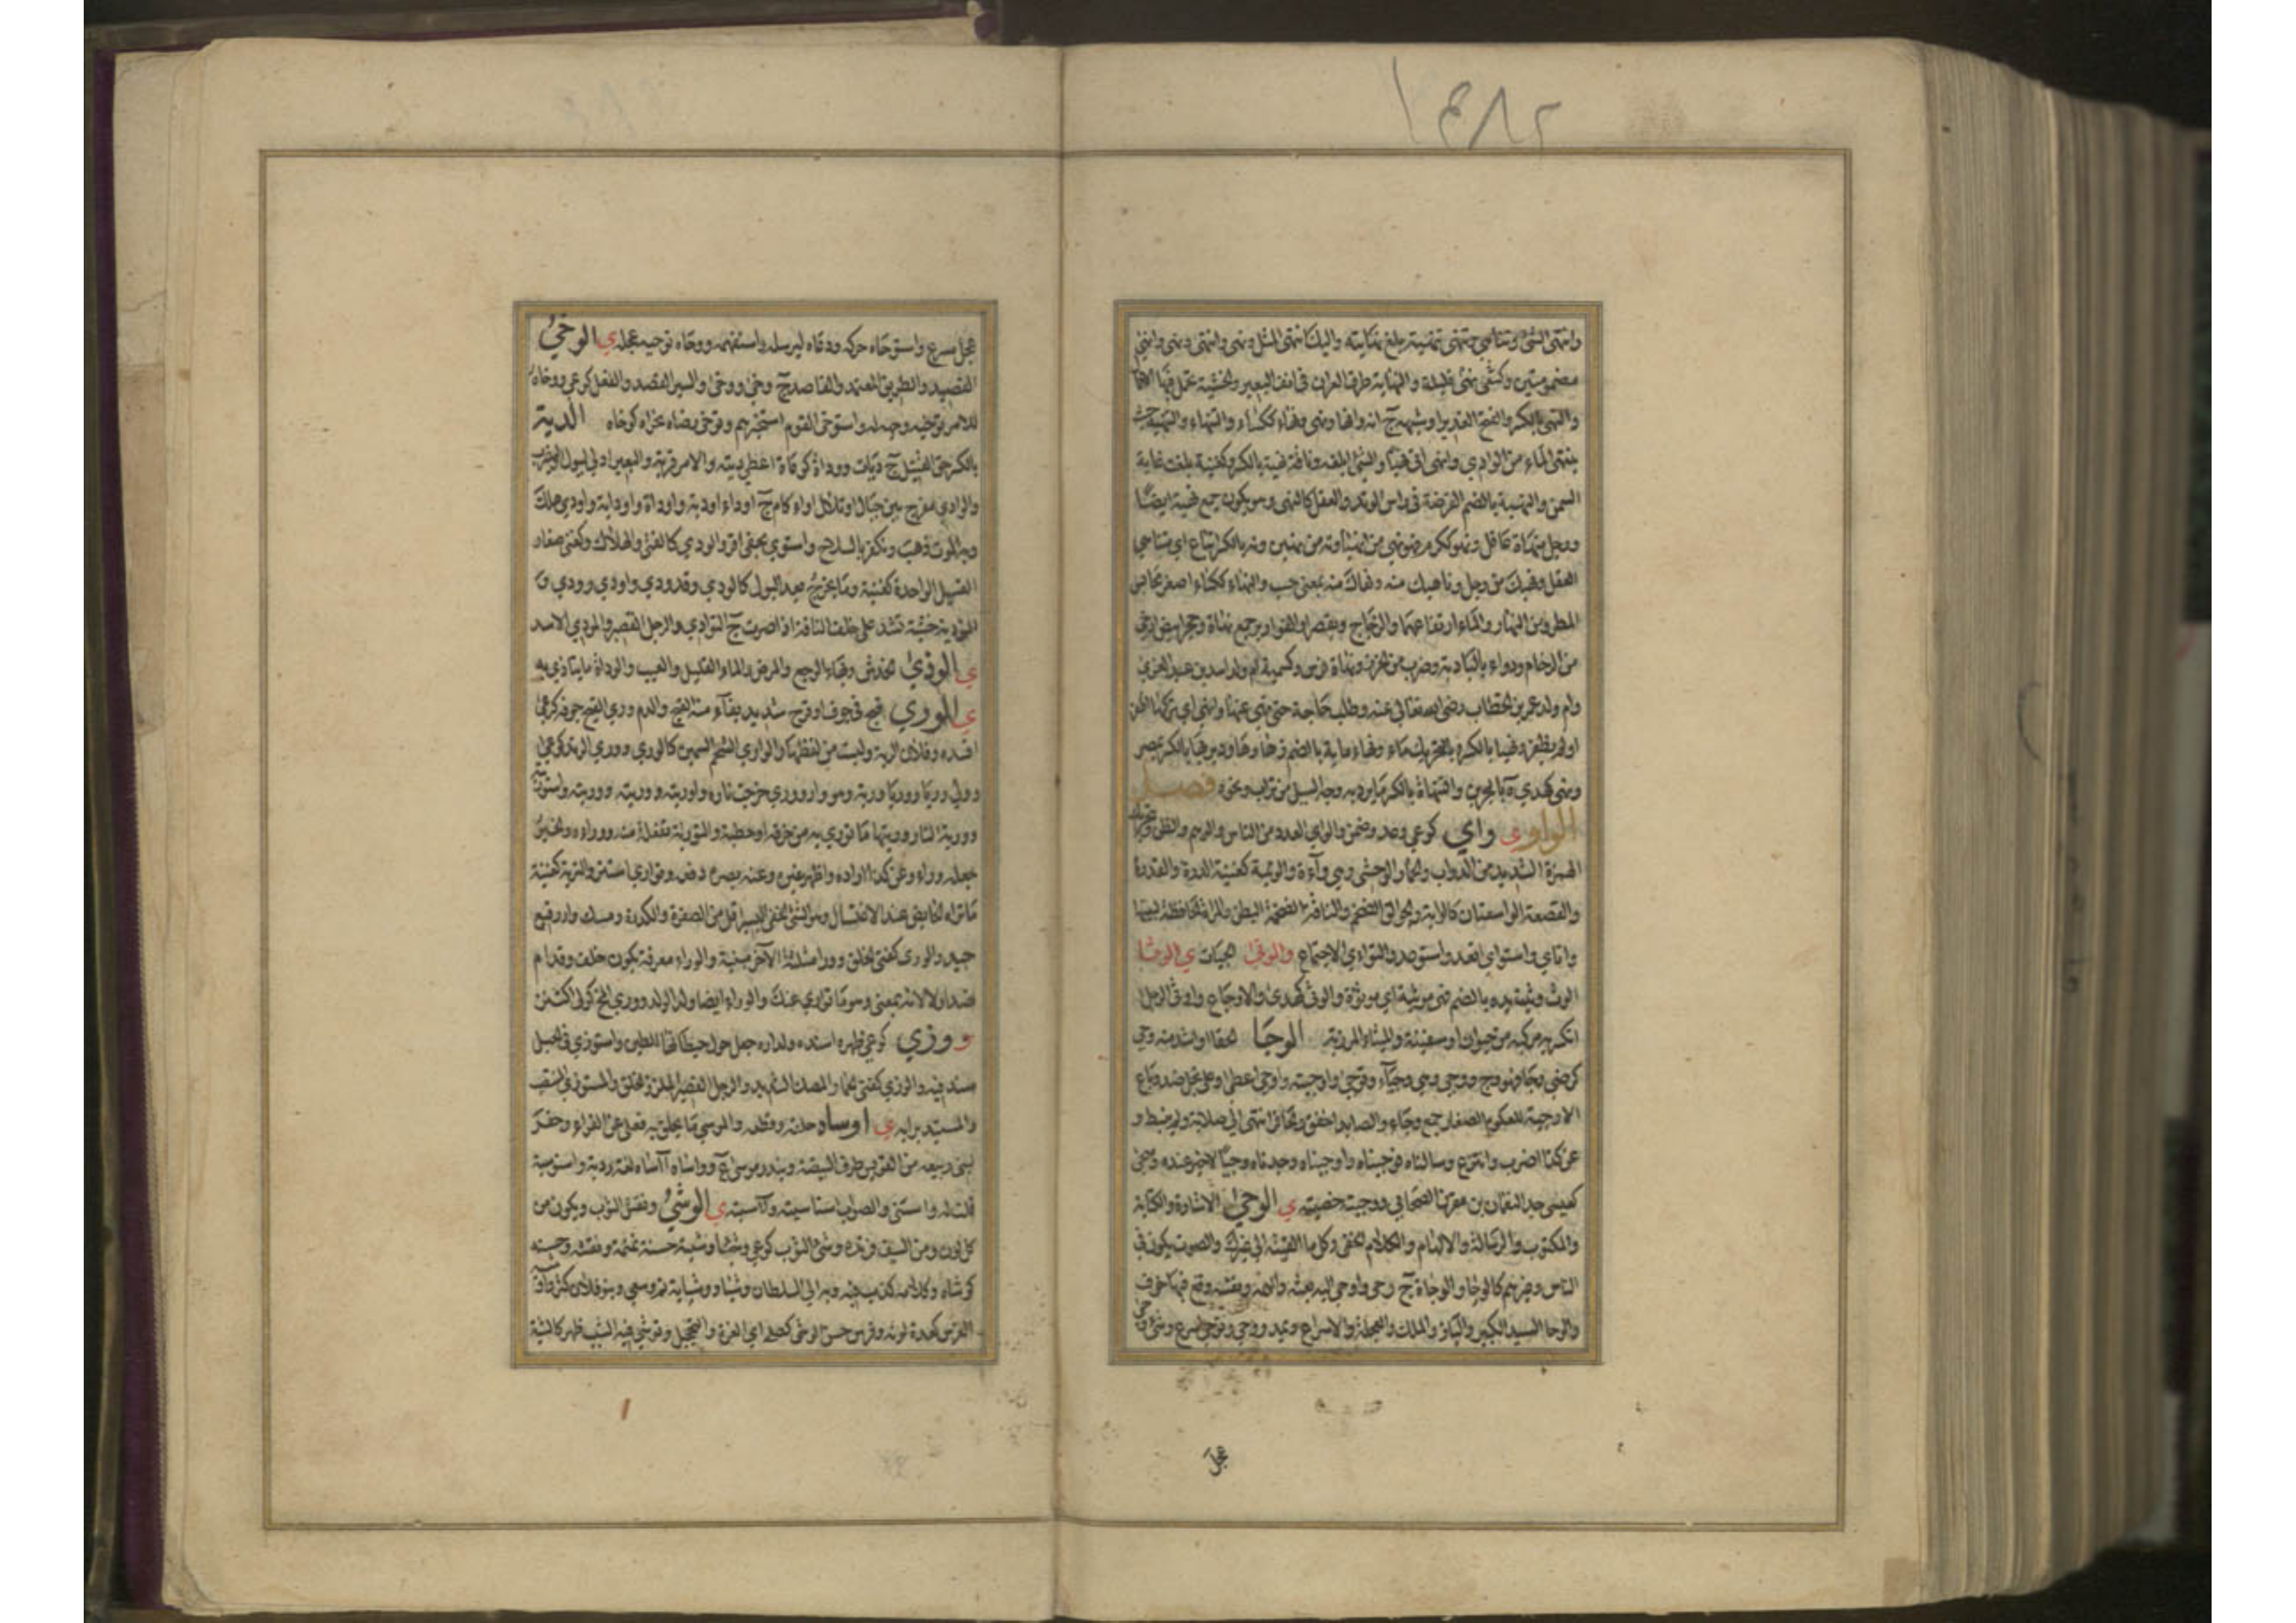 وانتهى الشئ وتناهى ونهى تنهية بلغ نهايته واليك انهى المثل ونهى وانتهى ونهى وانهى
مضمومتين وكسعى نهى قليلة والنهاية طرف العران فى انف البعير والخشبة تحمل فيها الاحمال
والنهى بالكسر والفتح الغدير او شبهه ج انه وانهاء ونهى ونهاء ككساء والتنهاء والتنهية حيث
ينتهى الماء من الوادى وانهى اتى نهيا والشئ ابلغه وناقة نهية بالكسر وكغنية بلغت غاية
السمن والنهية بالضم الفرضة فى راس الوتد والعقل كالنهى وهو يكون جمع نهية ايضا
ورجل منهاة عاقل ونهو ككرم فهو نهى من انهياء ونه من نهين ونه بالكسر اتباع اى متناهى
العقل ونهيك من رجل وناهيك منه ونهاك منه بمعنى حسب والنهاء ككساء اصغر محابس
المطر ومن النهار والماء ارتفاعهما والزجاج ويقصر او القوارير جمع نهاة وحجر ابيض ارخى
من الرخام ودواء بالبادية وضرب من الخرز ونهاة فرس وكسمية ام ولد اسد بن عبد العزى
وام ولد عمر بن الخطاب رضى الله تعالى عنه وطلب حاجة حتى نهى عنها وانهى اى تركها ظفر
او لم يظفر ونهيا بالكسر وبالتحريك ماء ونهاء ماية بالضم زهاؤها ودير نهيا بالكسر بمصر
ونهى كهدى ة بالبحرين والتنهاة بالكسر ما يرد به وجه السيل من تراب ونحوه فصــل
الواو ى واى كوعى وعد وضمن والواى العدد من الناس والوهم والظن وبتحريك
الهمزة الشديد من الدواب والحمار الوحشى وهى وآءة والوئية كغنية الدرة والقدرة
والقصعة الواسعتان كالواية والجوالق الضخم والناقة الضخمة البطن والمراة الحافظة لبيتها
واتاى واستواى اتعد واستوعد والتوائى الاجتماع والوتى الجيات ى الوثى
الوث وثيت يده بالضم فهى موثية اى موثؤة والوثى كهدى والاوجاع واوثى الرجل
انكسر به مركبه من حيوان او سفينة والميثاء المرزبة الوجا الحفا او اشد منه وجى
كرضى وجا فهو وج ووجى وهى وجياء وتوجى واوجيته واوجى اعطى وعلى بخل ضد وباع
الاوجية للعكوم الصغار جمع وجاء والصايد اخفق والحافر انتهى الى صلابة ولم ينبط و
عن كذا اضرب وانتزع وسالناه فوجيناه واوجيناه وجدناه وجيا لا خير عنده وجى
كعيسى جد النعمان بن مقرن الصحابى ووجيته خصيته ى الوحى الاشارة والكتابة
والمكتوب والرسالة والالهام والكلام الخفى وكل ما القيته الى غيرك والصوت يكون فى
الناس وغيرهم كالوحا والوحاة ج وحى واوحى اليه بعثه والهمه ونفسه وقع فيها خوف
والوحا السيد الكبير والنار والملك والعجلة والاسراع ويمد ووحى وتوحى اسرع وشئ وحى
عجل
عجل مسرع واستوحاه حركه ودعاه ليرسله واستفهمه ووحاه توحية عجله ى الوخى
القصد والطريق المعتمد والقاصد ج وخى ووخى والسير القصد والفعل كوعى ووخاه
للامر توخية وجهه له واستوخى القوم استخبرهم وتوخى رضاه تحراه كوخاه الدية
بالكسر حق القتيل ج ديات ووداه كدعاه اعطى ديته والامر قربه والبعير ادلى ليبول او ليضرب
والوادى مفرج بين جبال او تلال او اكام ج اوداء اودية واوداة واوداية واودى هلك
وبه الموت ذهب وتكفر بالسلاح واستودى بحقى اقر والودى كالفتى الهلاك وكغنى صغار
الفسيل الواحدة كغنية وما يخرج بعد البول كالودى وقد ودى واودى وودى و
التودية خشبة تشد على خلف الناقة اذا صرت ج التوادى والرجل القصير والمودى الاسد
ى الوذى الخدش وبهاء الوجع والمرض والماء القليل والعيب والوذاة ما يتاذى به
ى الورى قيح فى جوف او قرح شديد يقاء منه القيح والدم وورى القيح جوفه كوعى
افسده وفلان الرية وليست من لفظها والوارى الشحم السمين كالورى وورى الزند كوعى
وولى وريا ووريا ورية وهو وار وورى خرجت ناره واوريته ووريته واستوريته
وورية النار وريتها ما تورى به من خرقة او حطبة والتورية تفعلة منه ووراه والخبر
جعله وراءه وعن كذا اراده واظهر غيره وعنه بصره دفعه وتوارى استتر والترية كغنية
ما تراه الحايض عند الاغتسال وهو الشئ الخفى اليسير اقل من الصفرة والكدرة ومسك وار رفيع
جيد والورى كفتى الخلق وورا مثلثة الآخر مبنية والوراء معرفة يكون خلف وقدام
ضد او لا لانه بمعنى وهو ما توارى عنك والوراء ايضا ولد الولد وورى المخ كولى اكتنز
و وزى كوعى ظهره اسنده ولداره جعل حول حيطانها الطين واستوزى فى الجبل
سند فيه والوزى كفتى الحمار المصك الشديد والرجل القصير الملزز الخلق والمستوزى المنتصب
والمستبد برايه ى اوساه حلقه وقطعه والموسى ما يحلق به فعلى عن الفراء وحفر
لبنى ربيعة من القونس طرف البيضة وبندر موسى ع وواساه آساه لغة ردية واستوسية
قلت له واستنى والصواب استاسيته وآسيته ى الوشى ونقش الثوب ويكون من
كل لون ومن السيف فرنده وشى الثوب كوعى وشيا وشية حسنة نمنمه ونقشه وحسنه
كوشاه وكلامه كذب فيه وبه الى السلطان وشيا ووشاية نم وسعى وبنو فلان كثروا وشية
الفرس كعدة لونه وفرس حسن الوشى كصلى اى الغرة والتحجيل وتوشى فيه الشيب ظهر كالشية